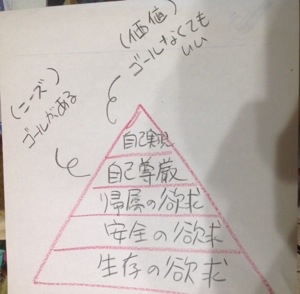 (価値)
ゴールなくても
いい
(ニーズ)
ゴールがある
自己実現
自己尊厳
帰属の欲求
安全の欲求
生存の欲求